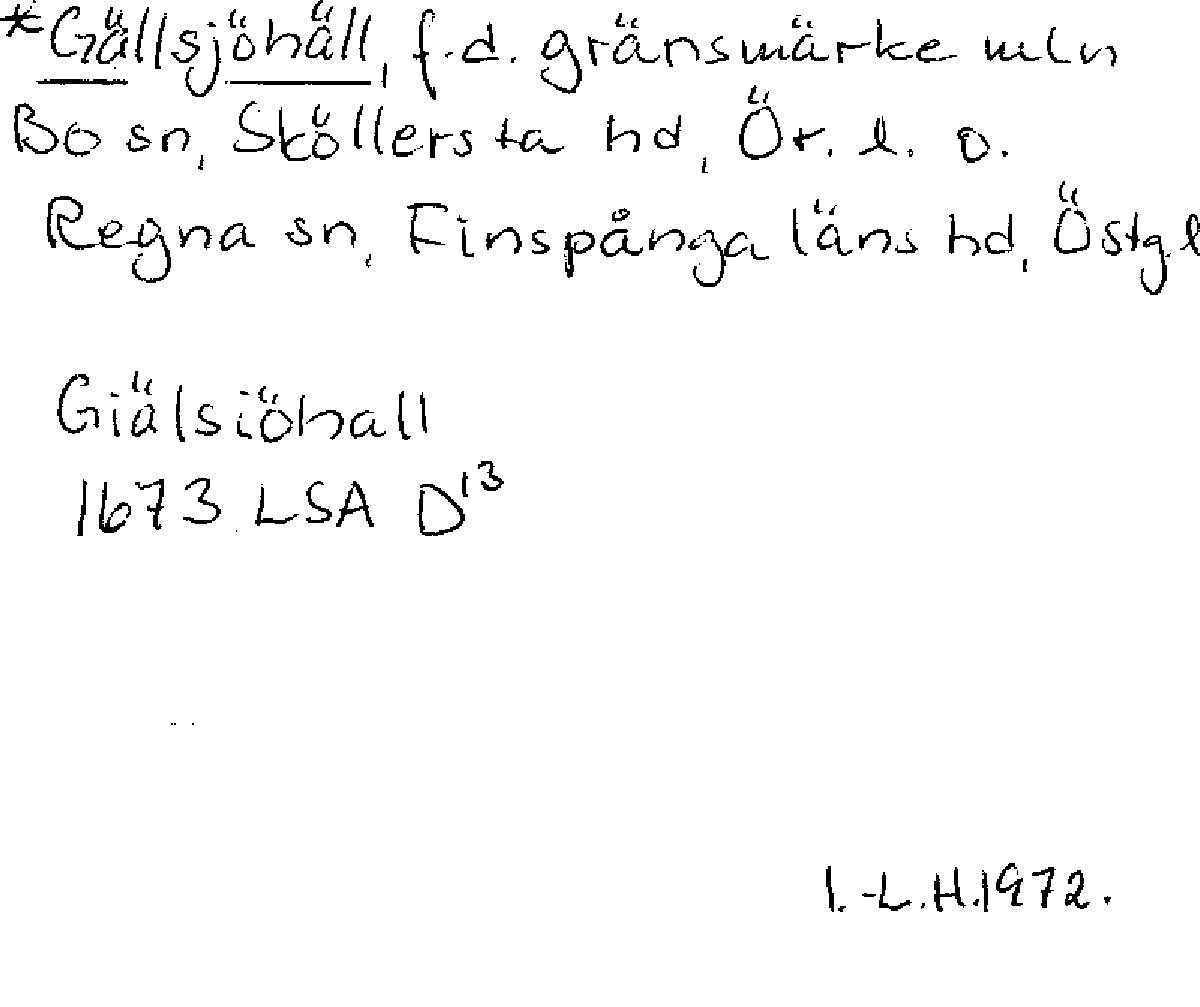 *Gällsjöhäll, f.d. gränsmärke mln
Bo sn, Sköllersta hd, Ör. l. o.
Regna sn, Finspånga läns hd, Östg.l
Giälsiöhall
1673 LSA D13
I.-L.H.1972.